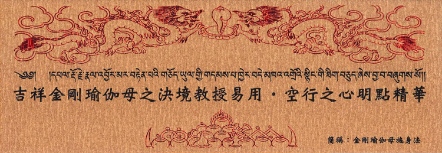 ༄༅། །དཔལ་རྡོ་རྗེ་རྣལ་འབྱོར་མར་བརྟེན་པའི་གཅོད་ཡུལ་གྱི་གདམས་པ་ཁྱེར་བདེ་མཁའ་འགྲོའི་སྙིང་གི་ཐིག་བཅུད་ཞེས་བྱ་བ་བཞུགས་སོ། །
吉祥金剛瑜伽母之決境教授易用・空行之心明點精華
簡稱：金剛瑜伽母施身法